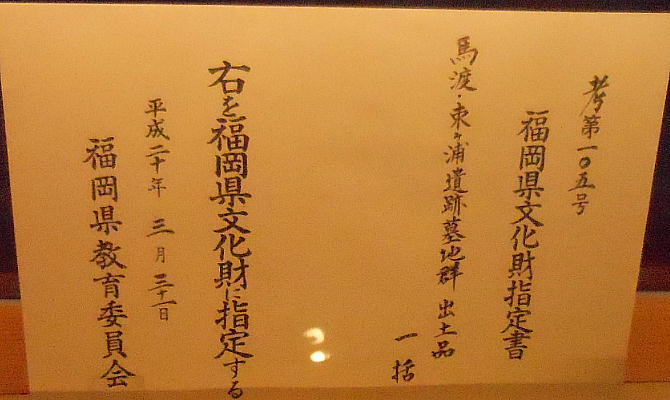 考第一〇五号
福岡県文化財指定書
馬渡・束ヶ浦遺跡墓地群 出土品
一括
右を福岡県文化財に指定する
平成二十年 三月 三十一日
福岡県教育委員会